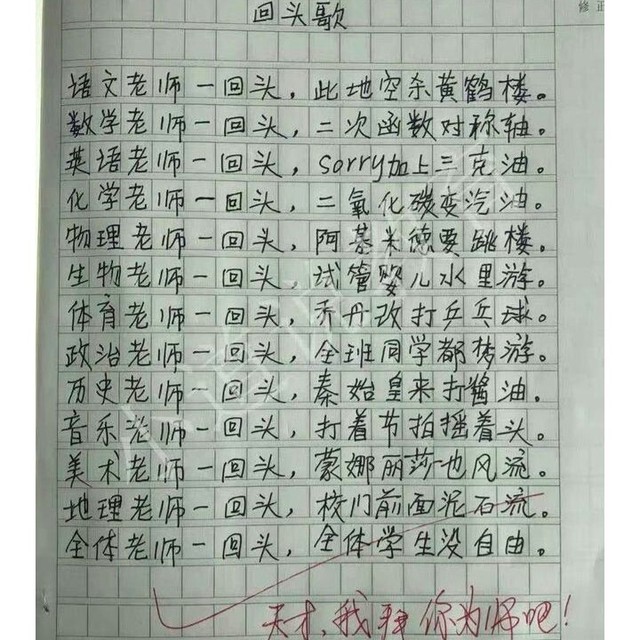 修正
回头歌
语文老师一回头，此地空杀黄鹤楼。
数学老师一回头，二次函数对称轴。
英语老师一回头，sorry加上三克油。
化学老师一回头，二氧化碳变汽油。
物理老师一回头，阿基米德要跳楼。
生物老师一回头，试管婴儿水里游。
体育老师一回头，乔丹改打乒乓球。
政治老师一回头，全班同学都梦游。
历史老师一回头，秦始皇来打酱油。
音乐老师一回头，打着节拍摇着头。
美术老师一回头，蒙娜丽莎也风流。
地理老师一回头，校门前面泥石流。
全体老师一回头，全体学生没自由。
天才，我拜你为师吧！